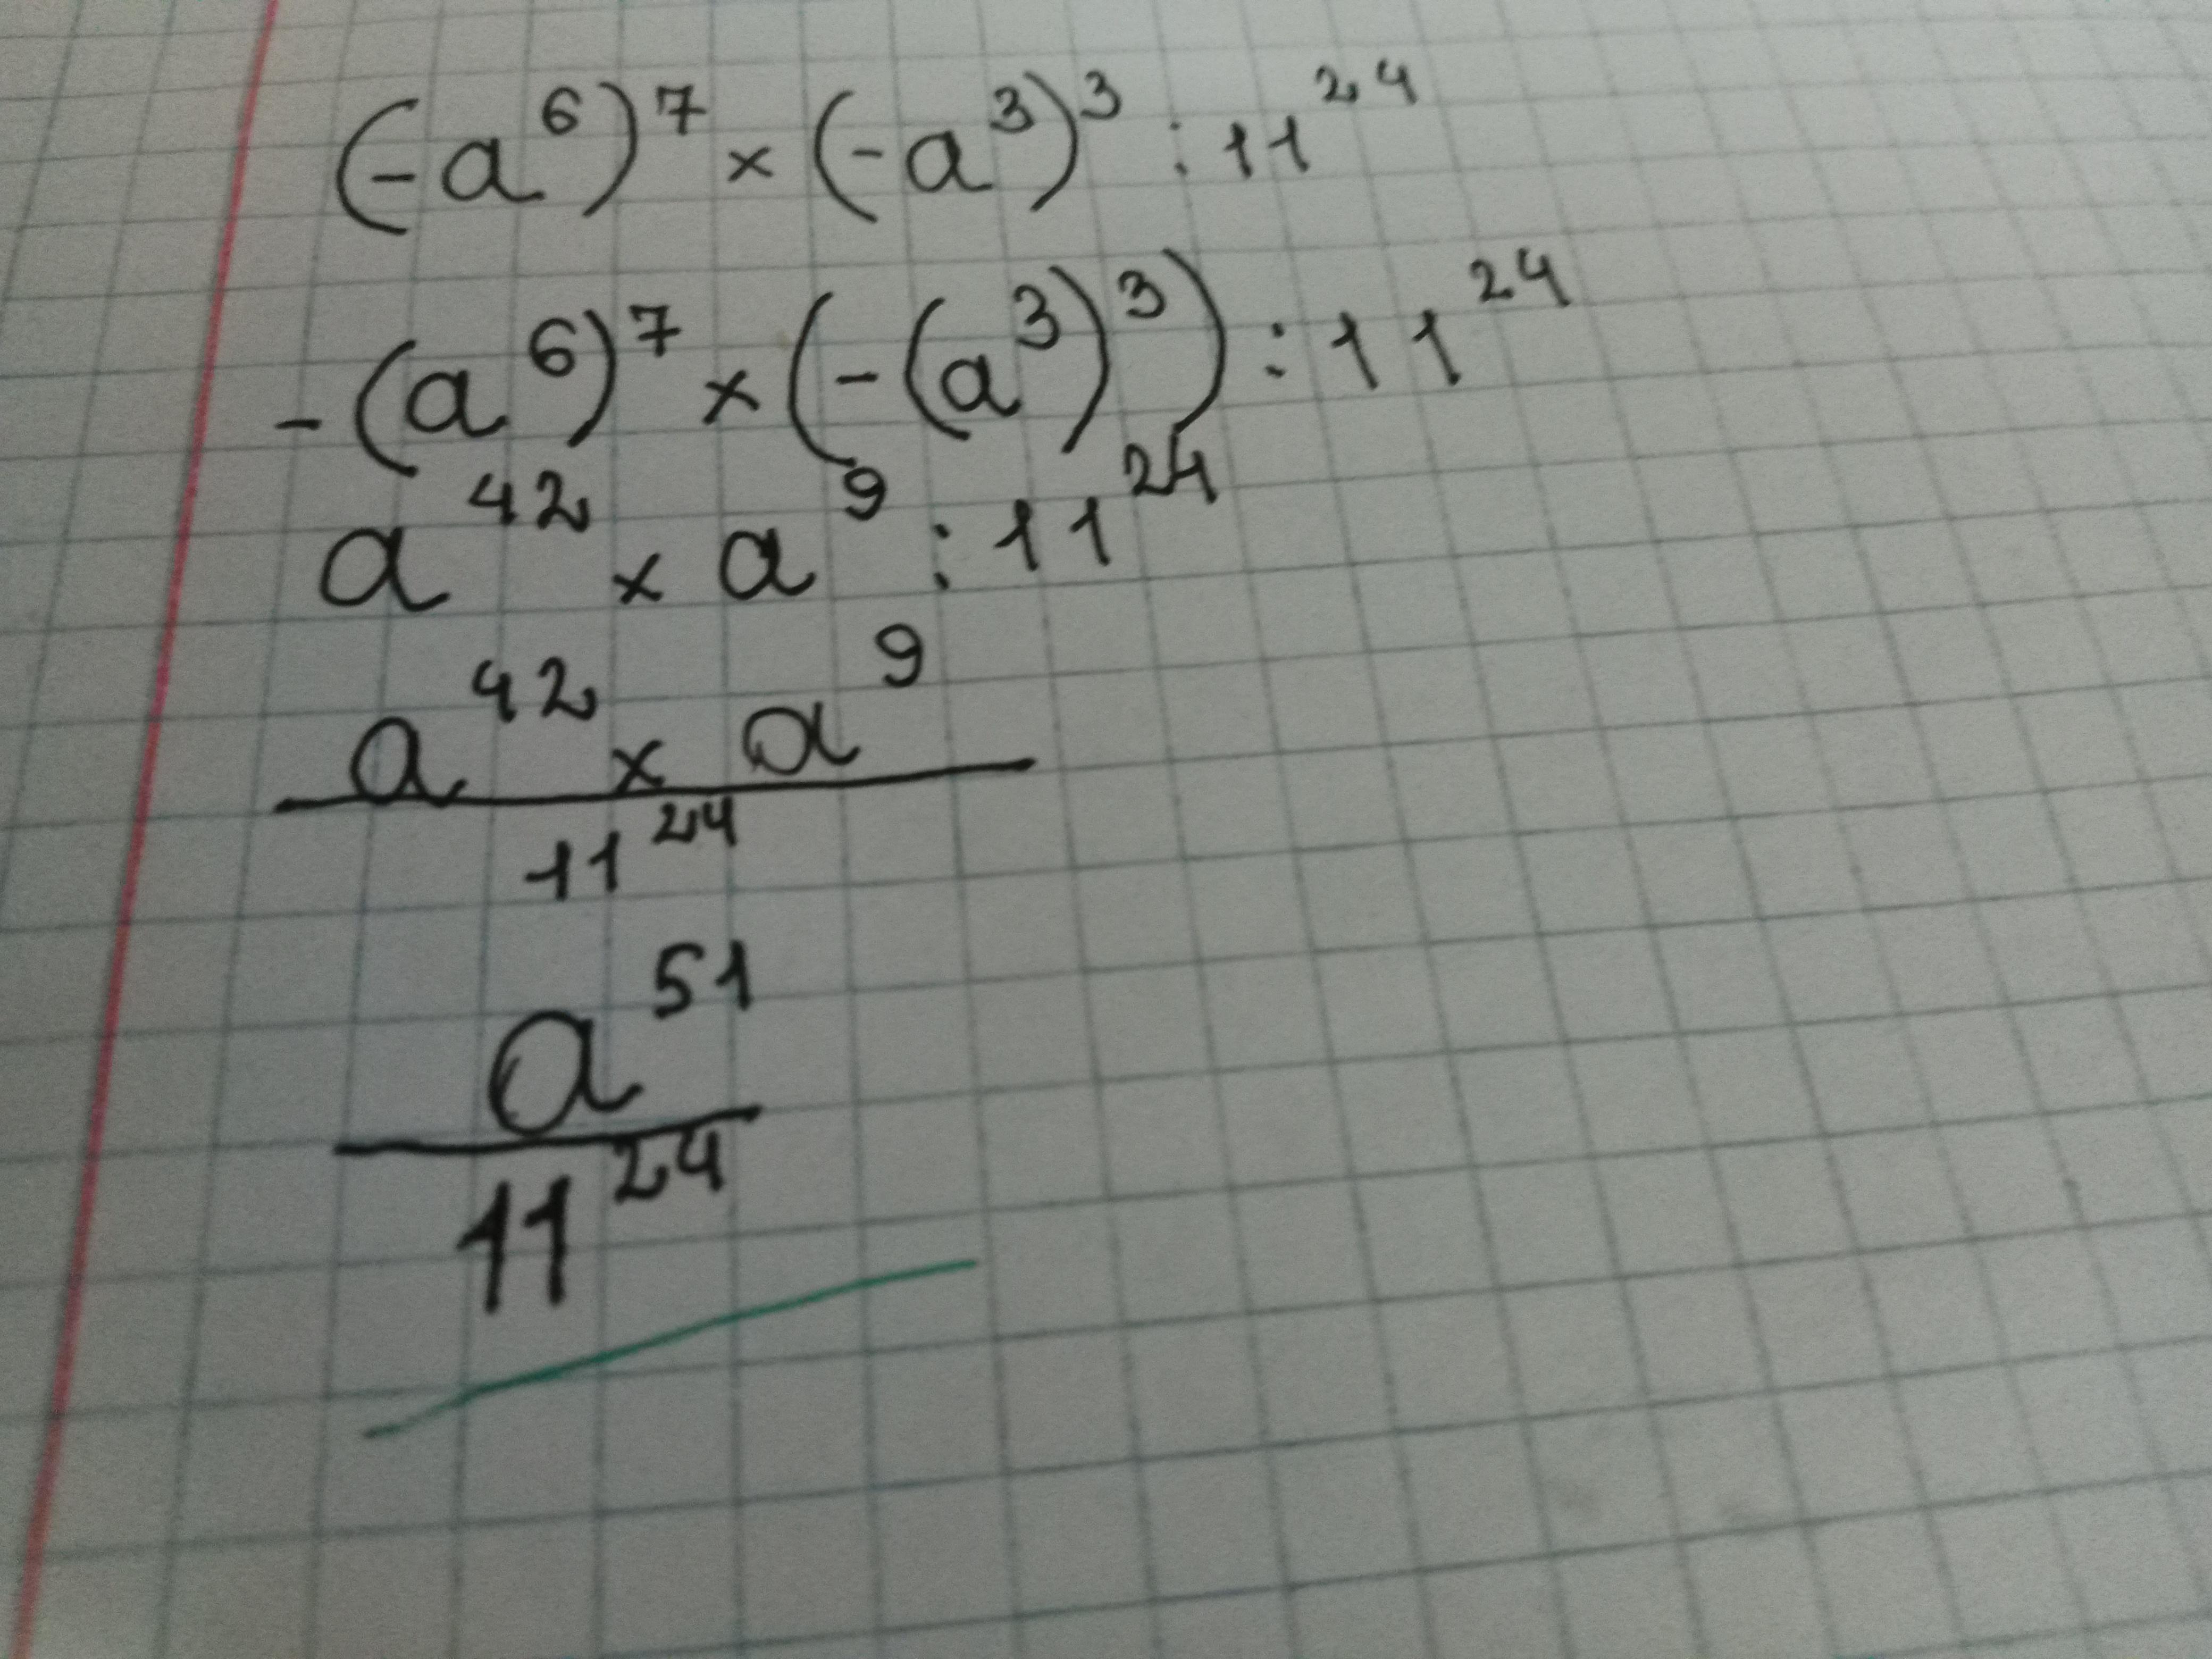 (-a⁶)⁷ × (-a³)³ : 11²⁴
-(a⁶)⁷ × (-(a³)³) : 11²⁴
a⁴² × a⁹ : 11²⁴
a⁴² × a⁹
11²⁴
a⁵¹
11²⁴